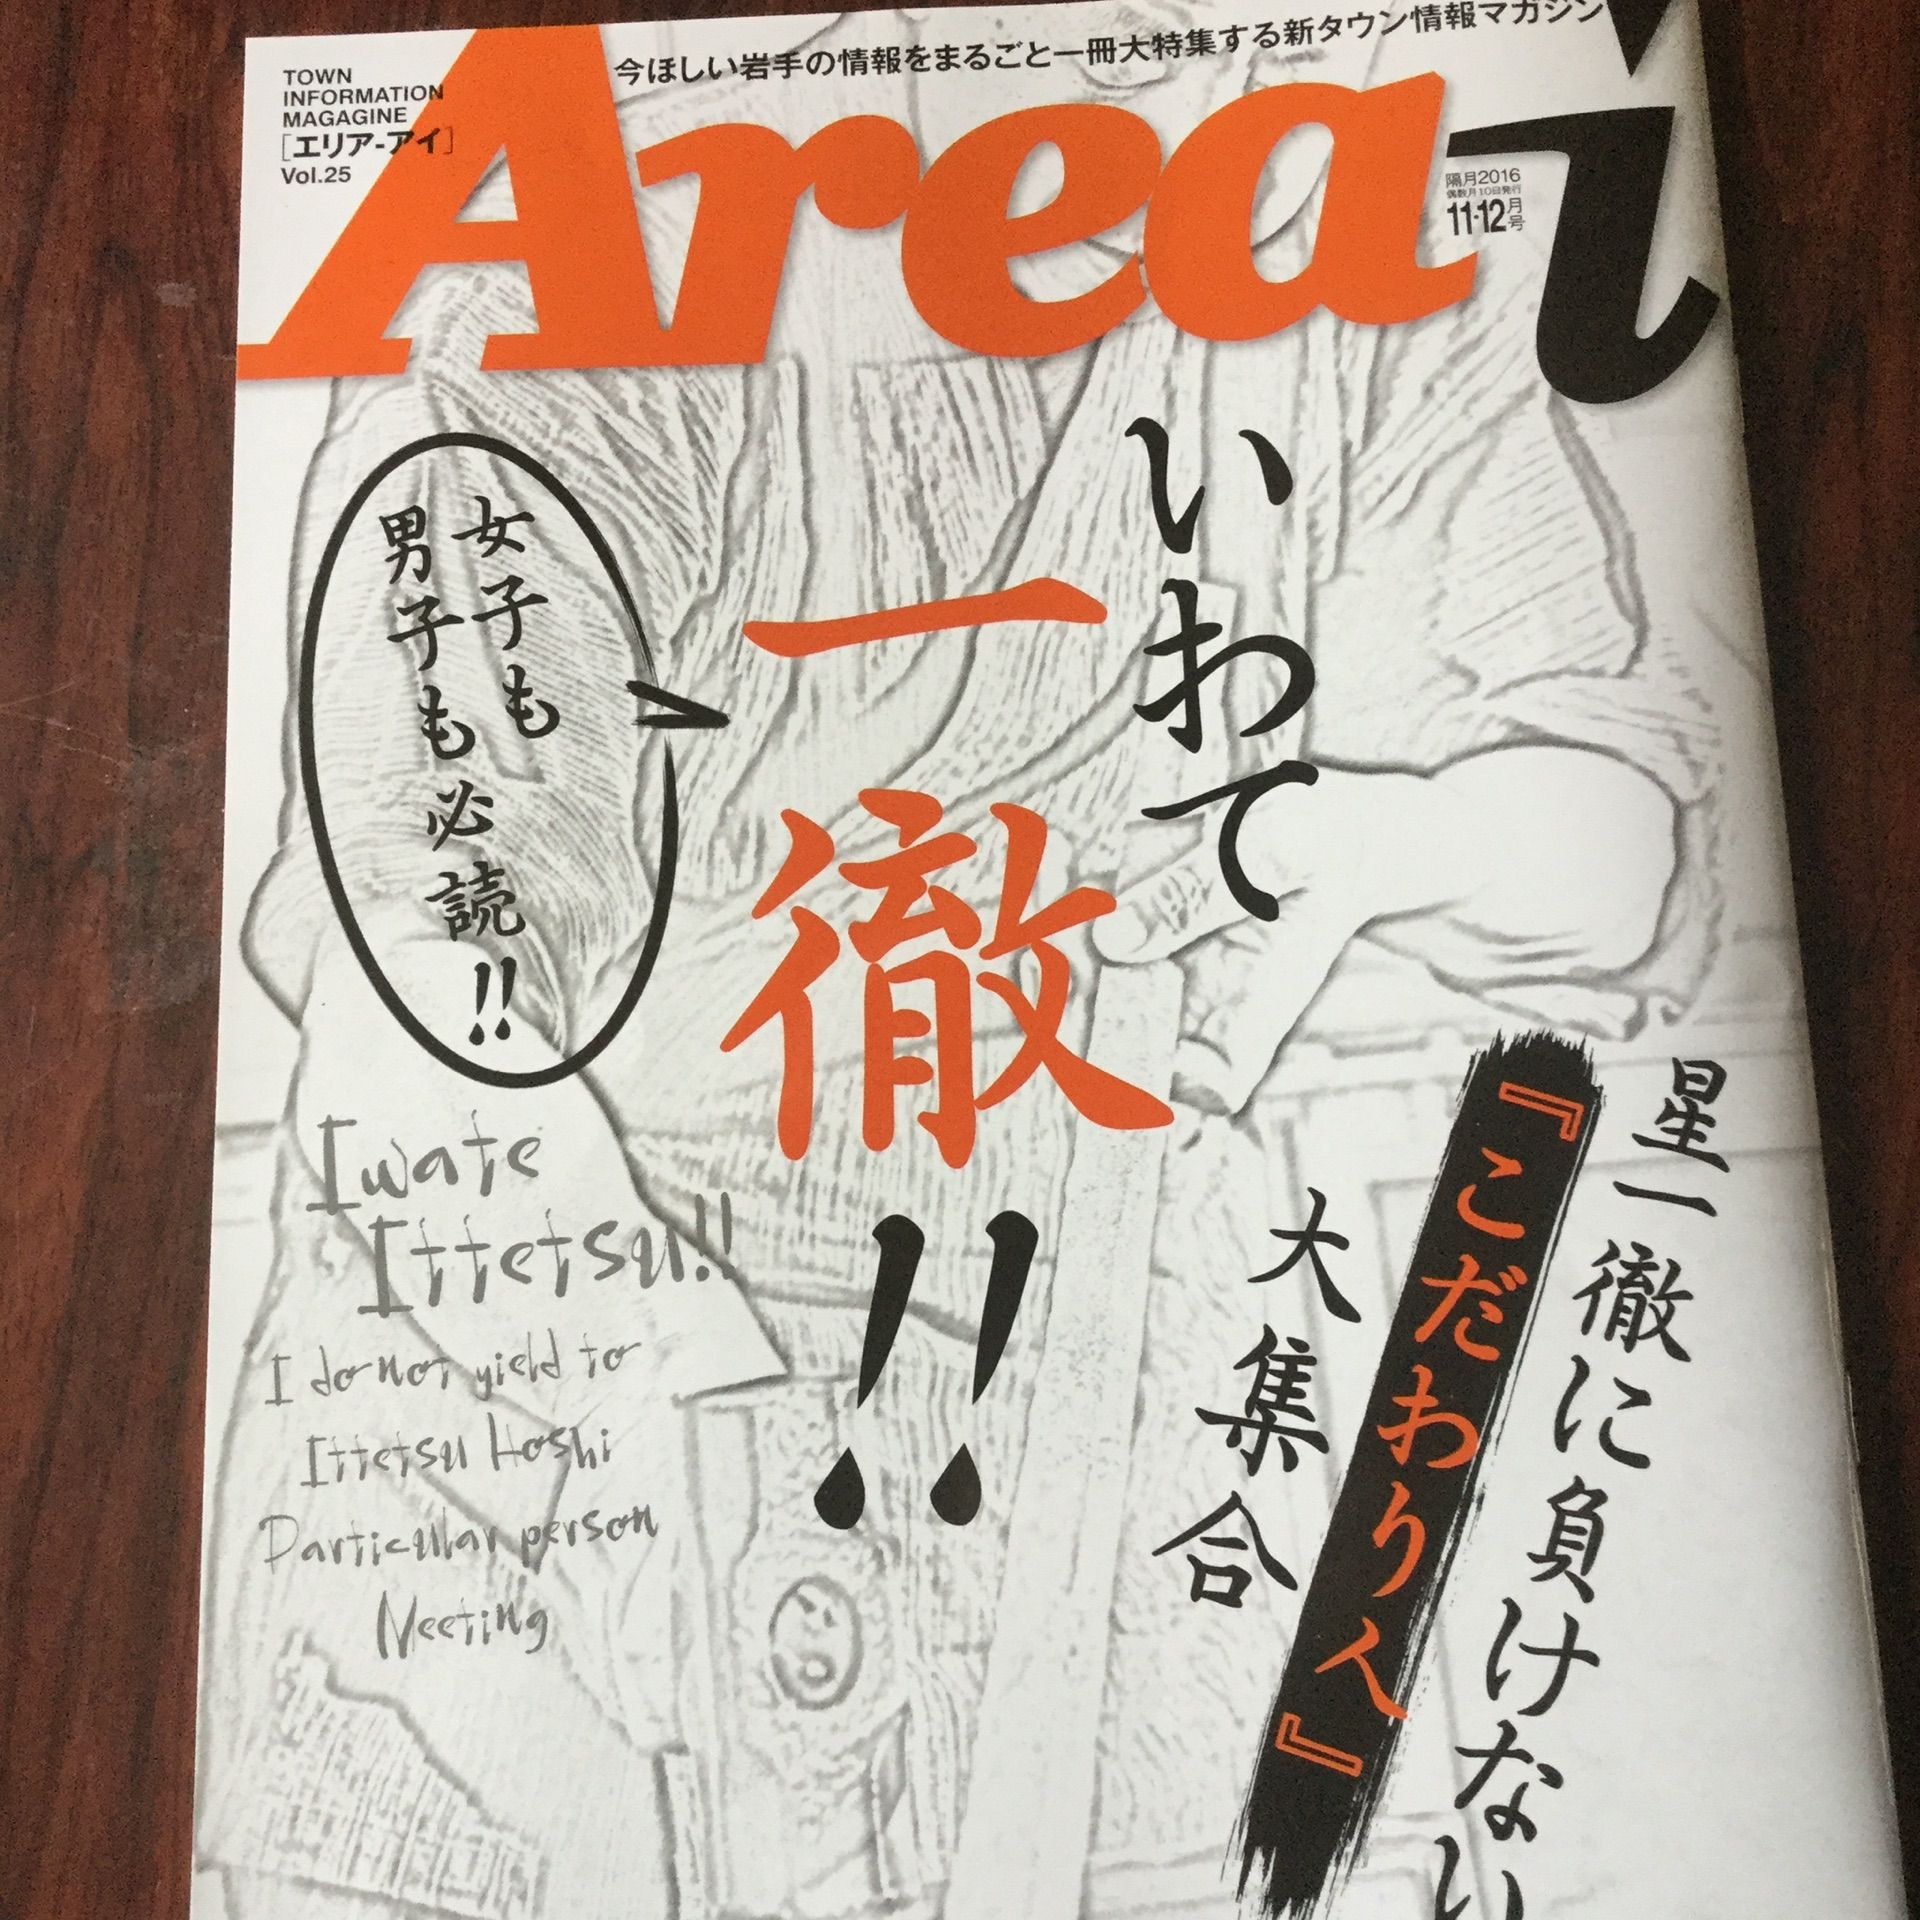 今ほしい岩手の情報をまるごと一冊大特集する新タウン情報マガジン
TOWN
INFORMATION
MAGAGINE
[エリア-アイ]
Vol.25
Area i
隔月2016
偶数月10日発行
11・12月号
いわて
一徹!!
女子も
男子も必読!!
星一徹に負けない
『こだわり人』
大集合
Iwate
Ittetsu!!
I do not yield to
Ittetsu Hoshi
Particular person
Meeting